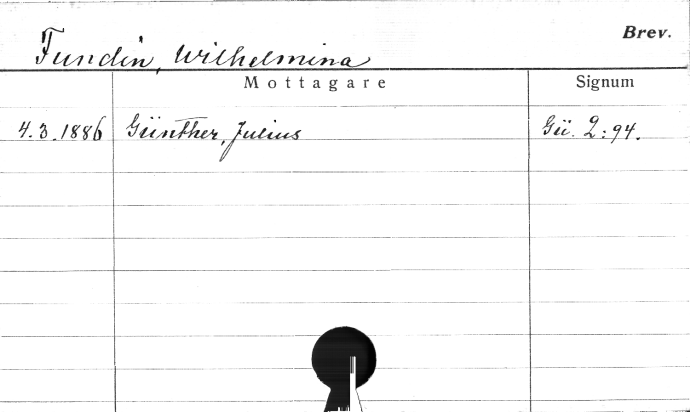 Brev.
Fundin, Wilhelmina
Mottagare Signum
4.3.1886 Günther, Julius Gü. 2:94.